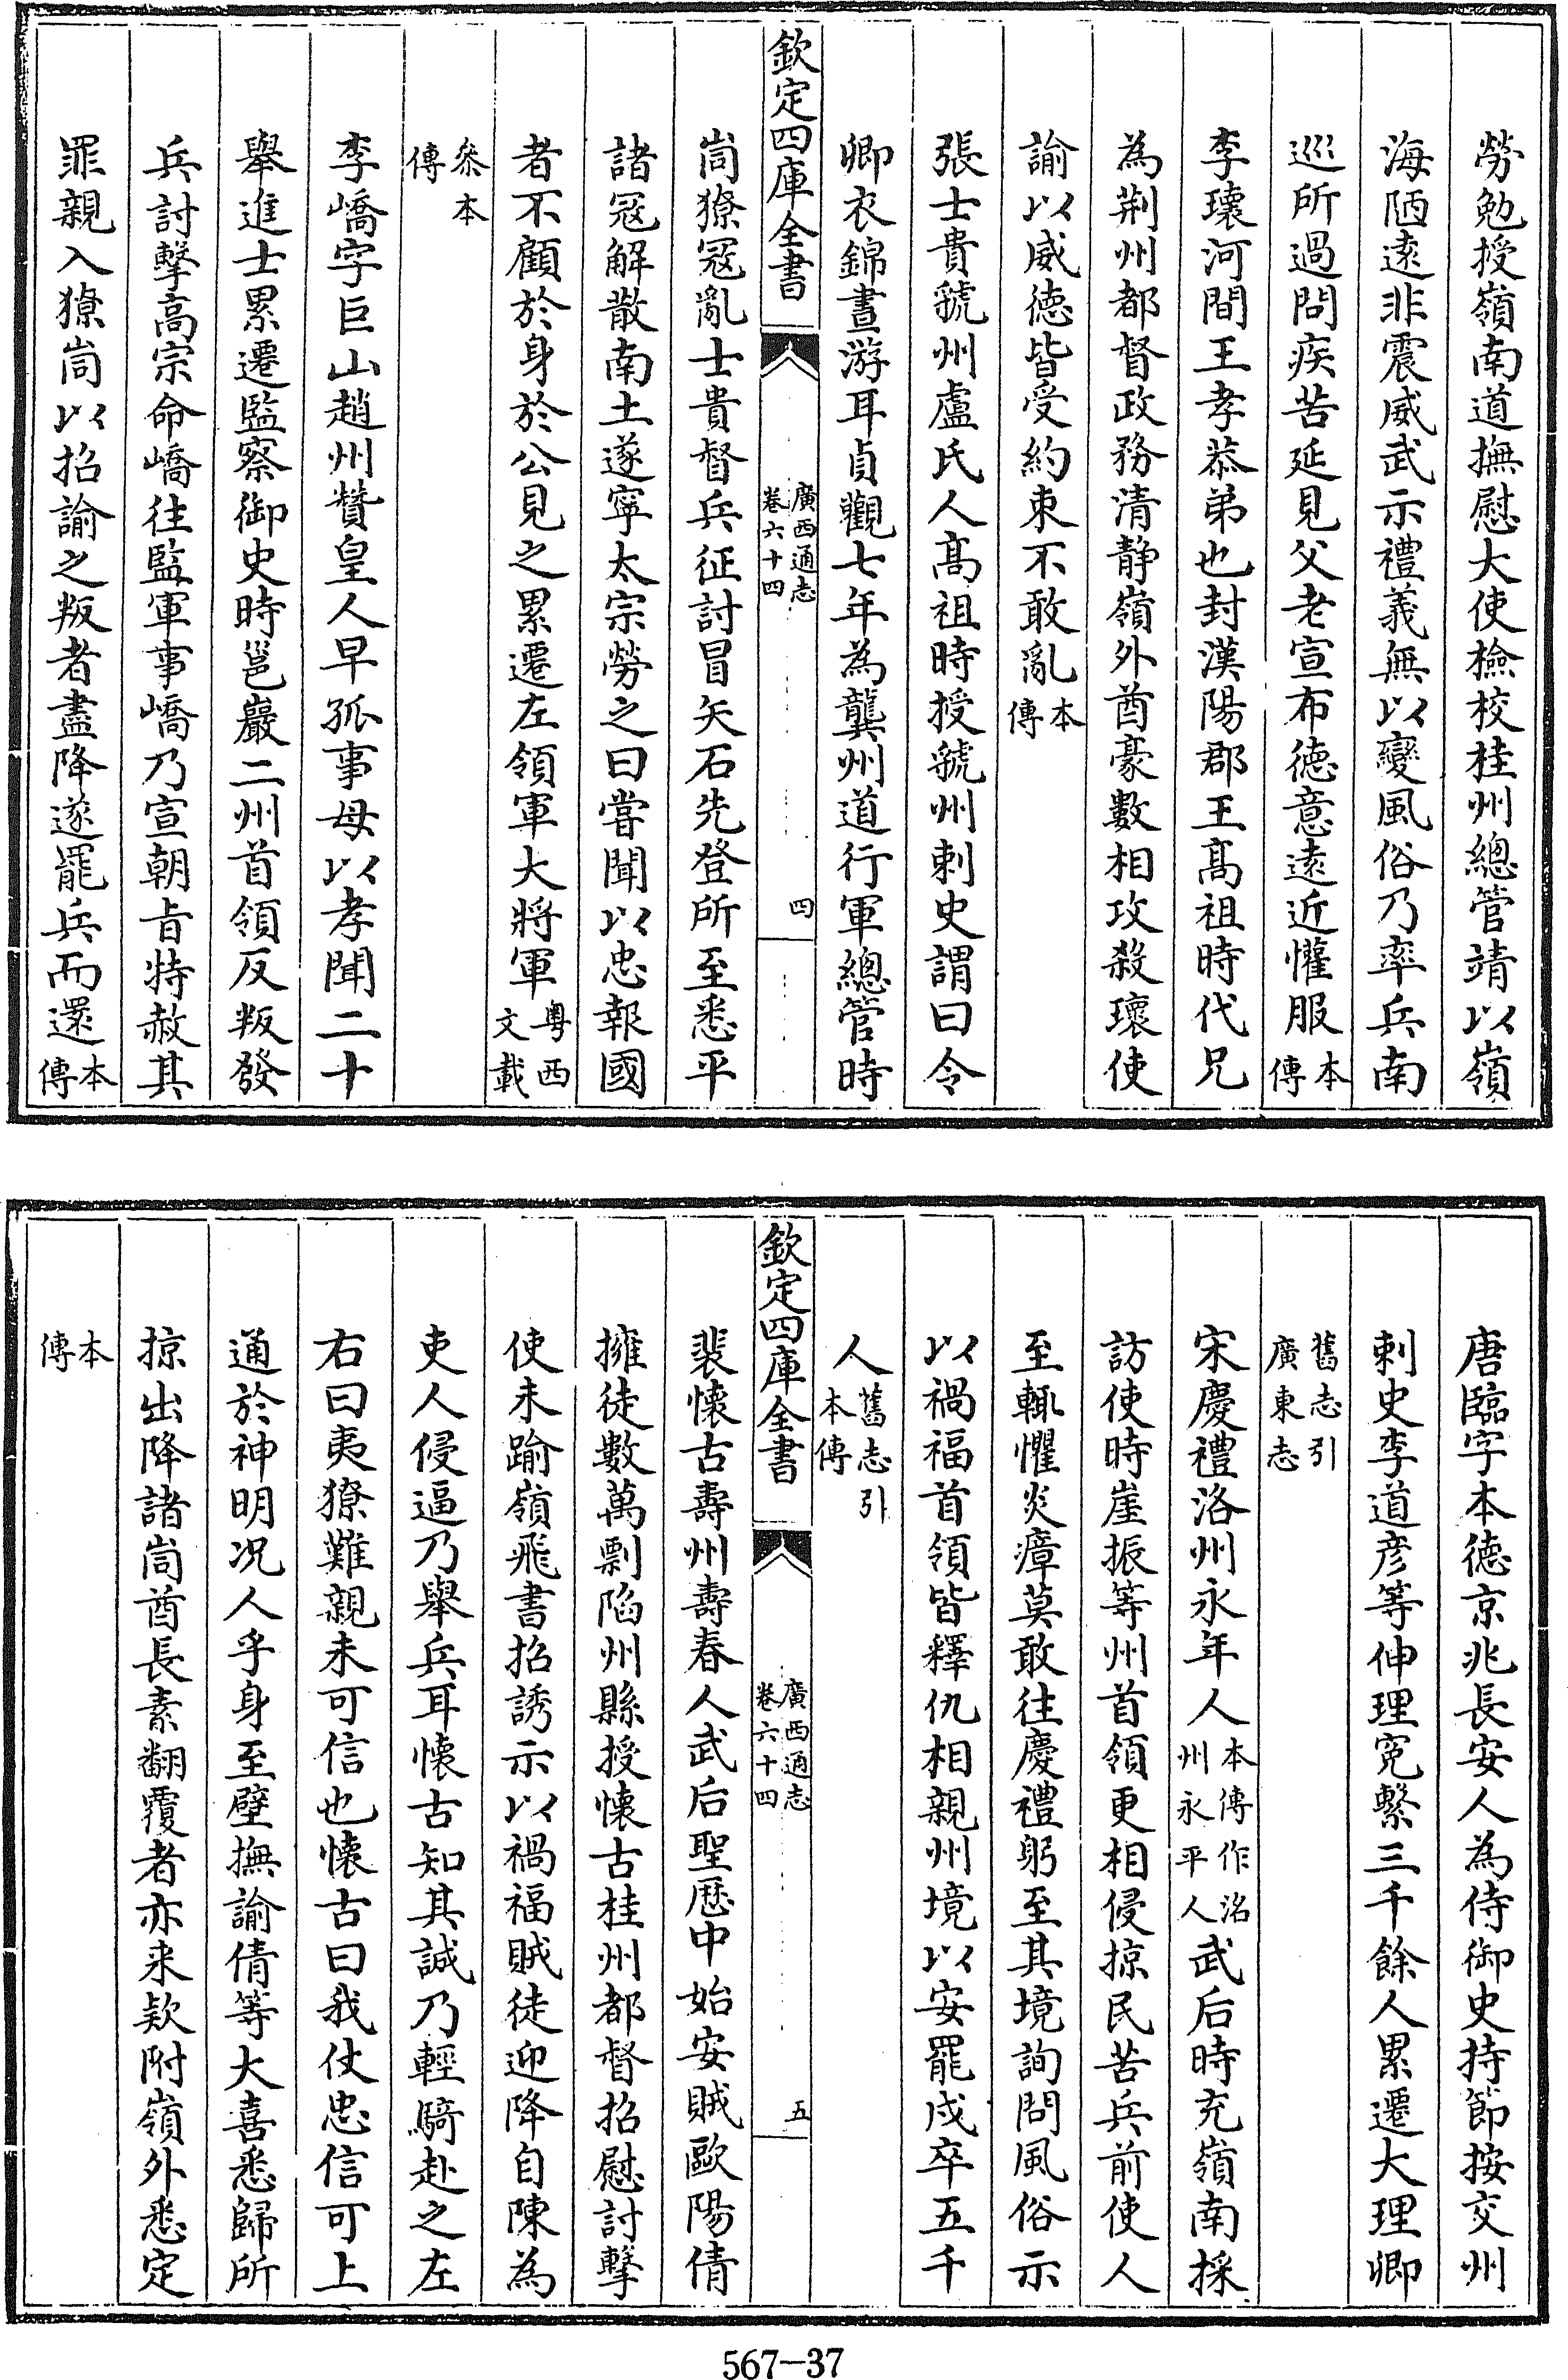 勞勉授嶺南道撫慰大使檢校桂州總管靖以嶺
海陋逺非震威武示禮義無以變風俗乃率兵南
巡所過問疾苦延見父老宣布徳意遠近懽服本傳
李瓌河間王孝恭弟也封漢陽郡王髙祖時代兄
為荆州都督政務清静嶺外酋豪數相攻殺瓌使
諭以威徳皆受約束不敢亂本傳
張士貴虢州盧氏人髙祖時授虢州刺史謂曰令
卿衣錦晝游耳貞觀七年為龔州道行軍總管時
欽定四庫全書
廣西通志
卷六十四
四
峝獠冦亂士貴督兵征討冒矢石先登所至悉平
諸冦解散南土遂寧太宗勞之曰嘗聞以忠報國
者不顧於身於公見之累遷左領軍大將軍粤西文載
叅本傳
李嶠字巨山趙州贊皇人早孤事母以孝聞二十
舉進士累遷監察御史時邕巖二州首領反叛發
兵討擊高宗命嶠往監軍事嶠乃宣朝旨特赦其
罪親入獠峝以招諭之叛者盡降遂罷兵而還本傳
唐臨字本徳京兆長安人為侍御史持節按交州
刺史李道彦等伸理寃繫三千餘人累遷大理卿
舊志引廣東志
宋慶禮洛州永年人本傳作洺州永平人武后時充嶺南採
訪使時崖振等州首領更相侵掠民苦兵前使人
至輒懼炎瘴莫敢往慶禮躬至其境詢問風俗示
以禍福首領皆釋仇相親州境以安罷戍卒五千
人舊志引本傳
欽定四庫全書
廣西通志
卷六十四
五
裴懐古壽州壽春人武后聖厯中始安賊歐陽倩
擁徒數萬剽陷州縣授懐古桂州都督招慰討擊
使未踰嶺飛書招誘示以禍福賊徒迎降自陳為
吏人侵逼乃舉兵耳懐古知其誠乃輕騎赴之左
右曰夷獠難親未可信也懐古曰我仗忠信可上
通於神明况人乎身至壁撫諭倩等大喜悉歸所
掠出降諸峝酋長素翻覆者亦来欵附嶺外悉定
本傳
567-37